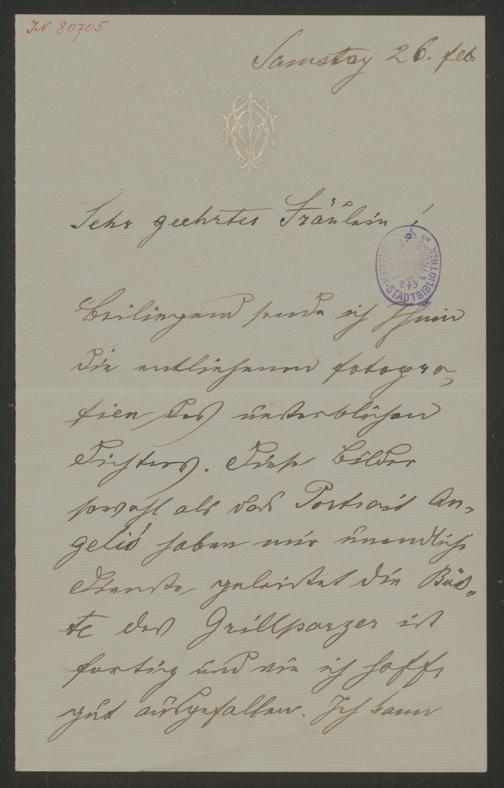 IN 80705
Samstag 26. feb
Sehr geehrtes Fräulein!
WIENER-STADTBIBLIOTHEK
Beiliegend sende ich Ihnen
die entliehenen fotogra-
fien des unsterblichen
Dichters. Diese Bilder
sowohl als das Portrait An-
gelis haben mir unendliche
Dienste geleistet die Büs-
te des Grillparzer ist
fertig und wie ich hoffe
gut ausgefallen. Ich kann